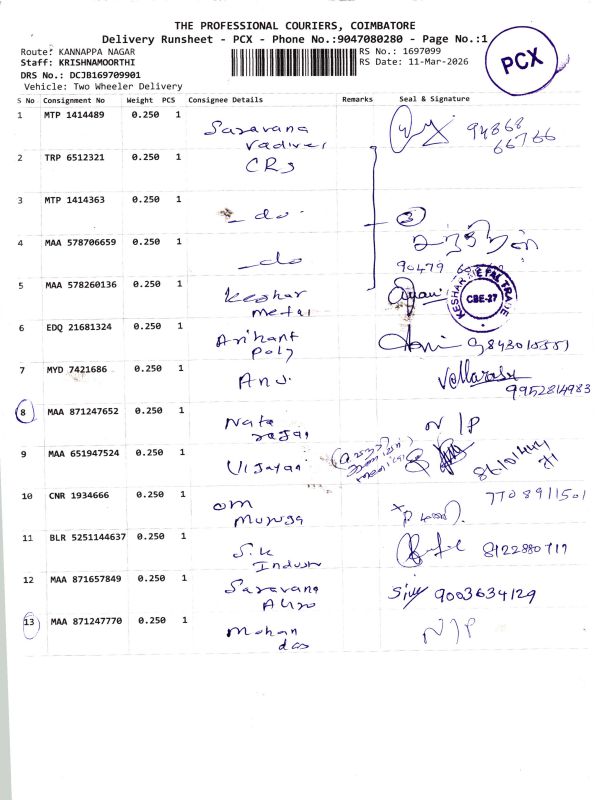 THE PROFESSIONAL COURIERS, COIMBATORE
Delivery Runsheet - PCX - Phone No.:9047080280 - Page No.:1
Route: KANNAPPA NAGAR
Staff: KRISHNAMOORTHI
DRS No.: DCJB169709901
Vehicle: Two Wheeler Delivery
RS No.: 1697099
RS Date: 11-Mar-2026
PCX
S No Consignment No Weight PCS Consignee Details Remarks Seal & Signature
1 MTP 1414489 0.250 1 Saravana
Vadivel
94868
66766
2 TRP 6512321 0.250 1 CRS
3 MTP 1414363 0.250 1 - do - 3
4 MAA 578706659 0.250 1 - do
90479
5 MAA 578260136 0.250 1 Keshar
metal
KESHAR METAL TRADE
CBE-27
6 EDQ 21681324 0.250 1 Arihant
Poly
9843015551
7 MYD 7421686 0.250 1 Anu.
Vellarasu
9952814983
8 MAA 871247652 0.250 1 Nata
rajan
N/P
9 MAA 651947524 0.250 1 Vijayan
10 CNR 1934666 0.250 1 om
Muruga
7708911501
11 BLR 5251144637 0.250 1 S.K
Industr
8122880719
12 MAA 871657849 0.250 1 Saravana
Auro
Siva 9003634129
13 MAA 871247770 0.250 1 Mohan
das
N/P